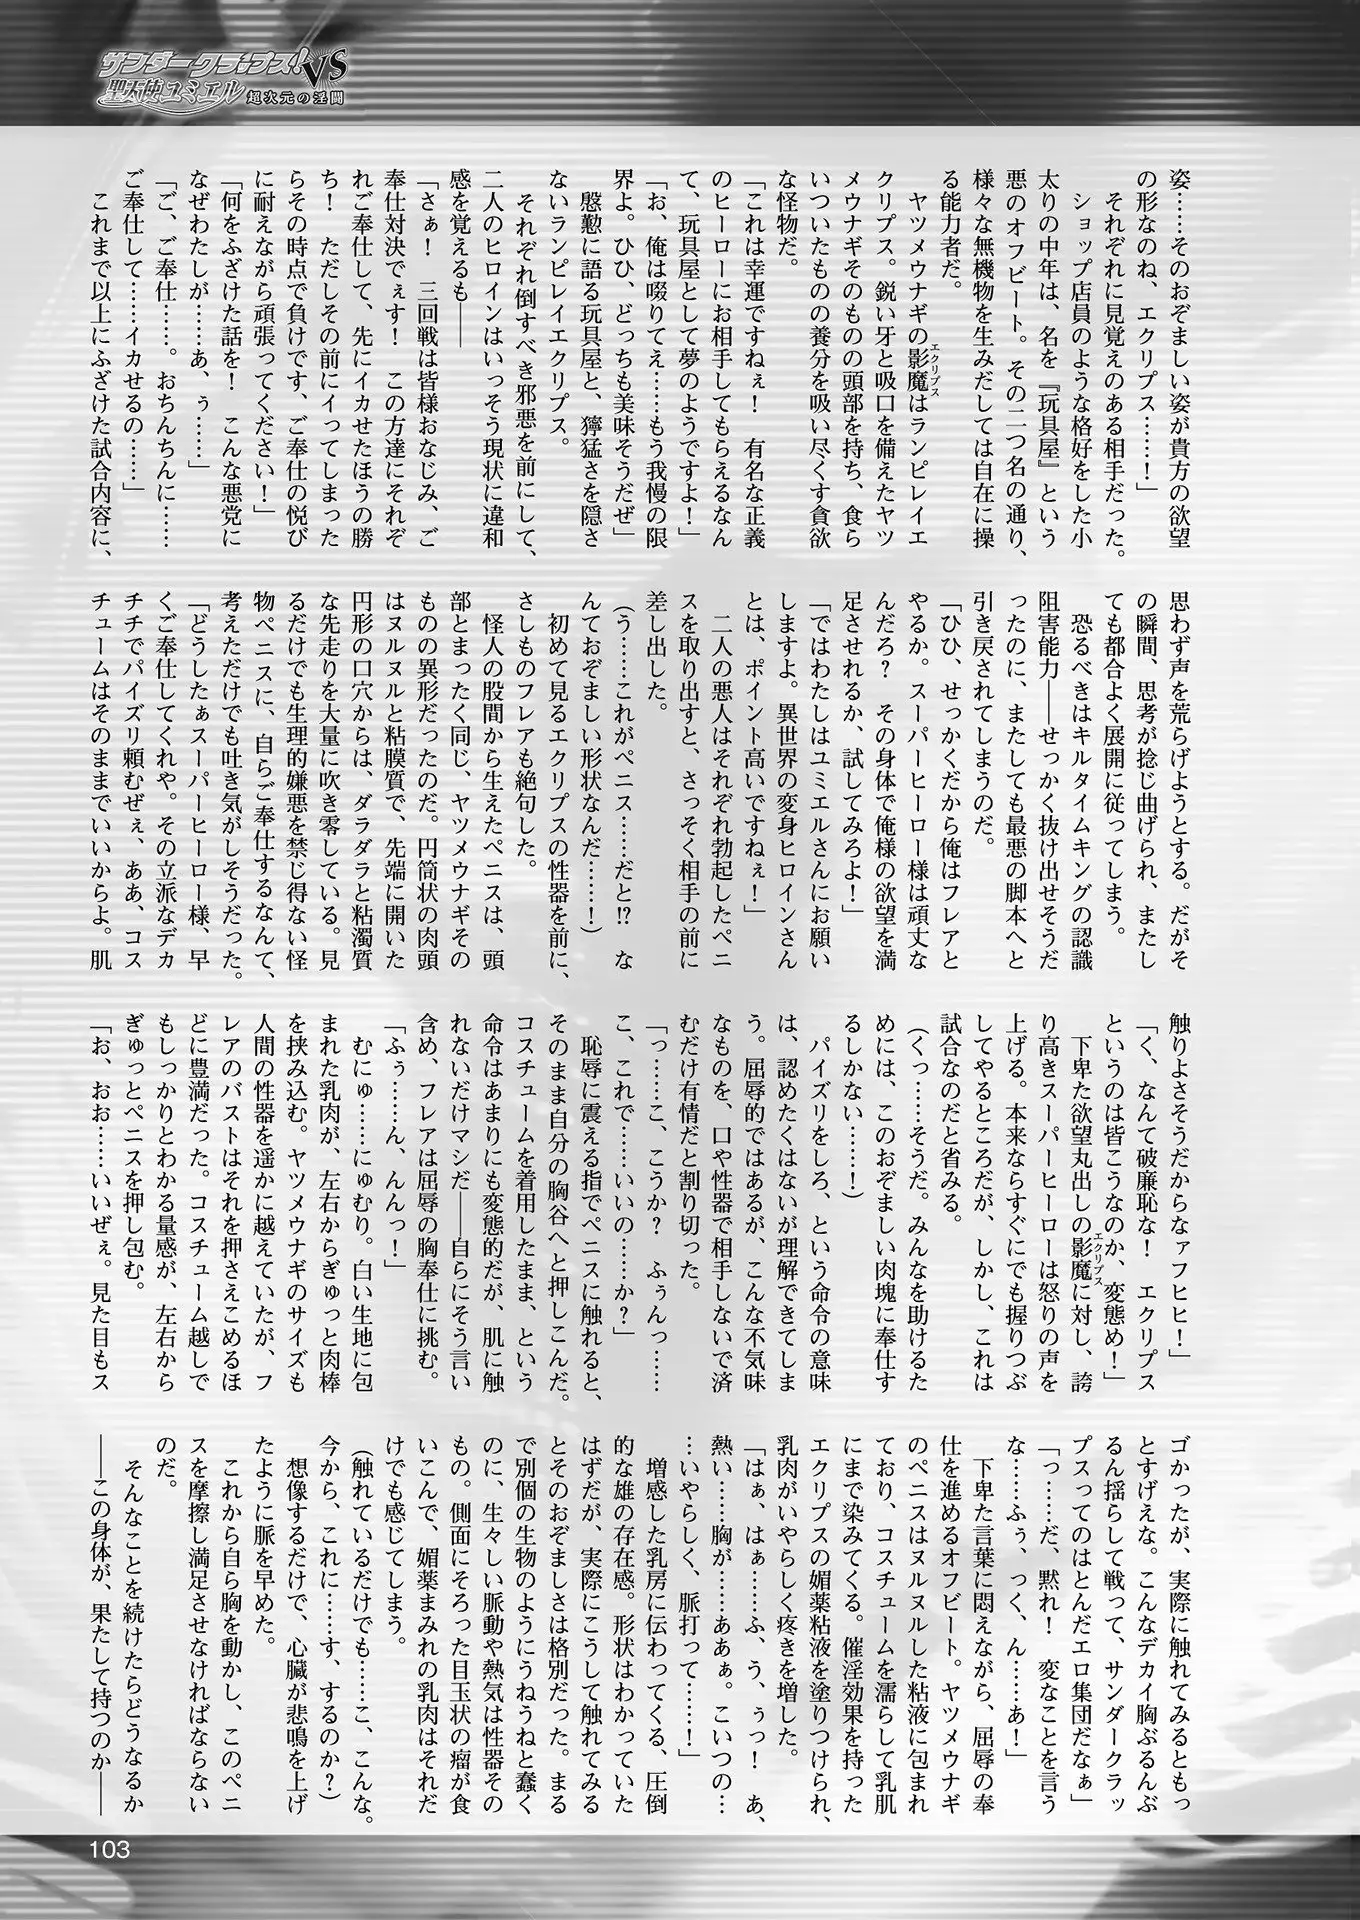 サンダークラップス！VS
聖天使ユミエル 超次元の淫闘
姿……そのおぞましい姿が貴方の欲望
の形なのね、エクリプス……！」
　それぞれに見覚えのある相手だった。
　ショップ店員のような格好をした小
太りの中年は、名を『玩具屋』という
悪のオフビート。その二つ名の通り、
様々な無機物を生みだしては自在に操
る能力者だ。
　ヤツメウナギの影魔はランピレイエ
エクリプス
クリプス。鋭い牙と吸口を備えたヤツ
メウナギそのものの頭部を持ち、食ら
いついたものの養分を吸い尽くす貪欲
な怪物だ。
「これは幸運ですねぇ！　有名な正義
のヒーローにお相手してもらえるなん
て、玩具屋として夢のようですよ！」
「お、俺は啜りてえ……もう我慢の限
界よ。ひひ、どっちも美味そうだぜ」
　慇懃に語る玩具屋と、獰猛さを隠さ
ないランピレイエクリプス。
　それぞれ倒すべき邪悪を前にして、
二人のヒロインはいっそう現状に違和
感を覚えるも――
「さぁ！　三回戦は皆様おなじみ、ご
奉仕対決でぇす！　この方達にそれぞ
れご奉仕して、先にイカせたほうの勝
ち！　ただしその前にイってしまった
らその時点で負けです、ご奉仕の悦び
に耐えながら頑張ってください！」
「何をふざけた話を！　こんな悪党に
なぜわたしが……あ、ぅ……」
「ご、ご奉仕……。おちんちんに……
ご奉仕して……イカせるの……」
　これまで以上にふざけた試合内容に、
思わず声を荒らげようとする。だがそ
の瞬間、思考が捻じ曲げられ、またし
ても都合よく展開に従ってしまう。
　恐るべきはキルタイムキングの認識
阻害能力――せっかく抜け出せそうだ
ったのに、またしても最悪の脚本へと
引き戻されてしまうのだ。
「ひひ、せっかくだから俺はフレアと
やるか。スーパーヒーロー様は頑丈な
んだろ？　その身体で俺様の欲望を満
足させれるか、試してみろよ！」
「ではわたしはユミエルさんにお願い
しますよ。異世界の変身ヒロインさん
とは、ポイント高いですねぇ！」
　二人の悪人はそれぞれ勃起したペニ
スを取り出すと、さっそく相手の前に
差し出した。
（う……これがペニス……だと!?　な
んておぞましい形状なんだ……！）
　初めて見るエクリプスの性器を前に、
さしものフレアも絶句した。
　怪人の股間から生えたペニスは、頭
部とまったく同じ、ヤツメウナギその
ものの異形だったのだ。円筒状の肉頭
はヌルヌルと粘膜質で、先端に開いた
円形の口穴からは、ダラダラと粘濁質
な先走りを大量に吹き零している。見
るだけでも生理的嫌悪を禁じ得ない怪
物ペニスに、自らご奉仕するなんて、
考えただけでも吐き気がしそうだった。
「どうしたぁスーパーヒーロー様、早
くご奉仕してくれや。その立派なデカ
チチでパイズリ頼むぜぇ、ああ、コス
チュームはそのままでいいからよ。肌
触りよさそうだからなァフヒヒ！」
「く、なんて破廉恥な！　エクリプス
というのは皆こうなのか、変態め！」
　下卑た欲望丸出しの影魔に対し、誇
エクリプス
り高きスーパーヒーローは怒りの声を
上げる。本来ならすぐにでも握りつぶ
してやるところだが、しかし、これは
試合なのだと省みる。
（くっ……そうだ。みんなを助けるた
めには、このおぞましい肉塊に奉仕す
るしかない……！）
　パイズリをしろ、という命令の意味
は、認めたくはないが理解できてしま
う。屈辱的ではあるが、こんな不気味
なものを、口や性器で相手しないで済
むだけ有情だと割り切った。
「っ……こ、こうか？　ふぅんっ……
こ、これで……いいの……か？」
　恥辱に震える指でペニスに触れると、
そのまま自分の胸谷へと押しこんだ。
コスチュームを着用したまま、という
命令はあまりにも変態的だが、肌に触
れないだけマシだ――自らにそう言い
含め、フレアは屈辱の胸奉仕に挑む。
「ふぅ……ん、んんっ！」
　むにゅ……にゅむり。白い生地に包
まれた乳肉が、左右からぎゅっと肉棒
を挟み込む。ヤツメウナギのサイズも
人間の性器を遥かに越えていたが、フ
レアのバストはそれを押さえこめるほ
どに豊満だった。コスチューム越しで
もしっかりとわかる量感が、左右から
ぎゅっとペニスを押し包む。
「お、おお……いいぜぇ。見た目もス
ゴかったが、実際に触れてみるともっ
とすげえな。こんなデカイ胸ぶるんぶ
るん揺らして戦って、サンダークラッ
プスってのはとんだエロ集団だなぁ」
「っ……だ、黙れ！　変なことを言う
な……ふぅ、っく、ん……あ！」
　下卑た言葉に悶えながら、屈辱の奉
仕を進めるオフビート。ヤツメウナギ
のペニスはヌルヌルした粘液に包まれ
ており、コスチュームを濡らして乳肌
にまで染みてくる。催淫効果を持った
エクリプスの媚薬粘液を塗りつけられ、
乳肉がいやらしく疼きを増した。
「はぁ、はぁ……ふ、う、ぅっ！　あ、
熱い……胸が……ああぁ。こいつの…
…いやらしく、脈打って……！」
　増感した乳房に伝わってくる、圧倒
的な雄の存在感。形状はわかっていた
はずだが、実際にこうして触れてみる
とそのおぞましさは格別だった。まる
で別個の生物のようにうねうねと蠢く
のに、生々しい脈動や熱気は性器その
もの。側面にそろった目玉状の瘤が食
いこんで、媚薬まみれの乳肉はそれだ
けでも感じてしまう。
（触れているだけでも……こ、こんな。
今から、これに……す、するのか？）
　想像するだけで、心臓が悲鳴を上げ
たように脈を早めた。
　これから自ら胸を動かし、このペニ
スを摩擦し満足させなければならない
のだ。
　そんなことを続けたらどうなるか
――この身体が、果たして持つのか――
103